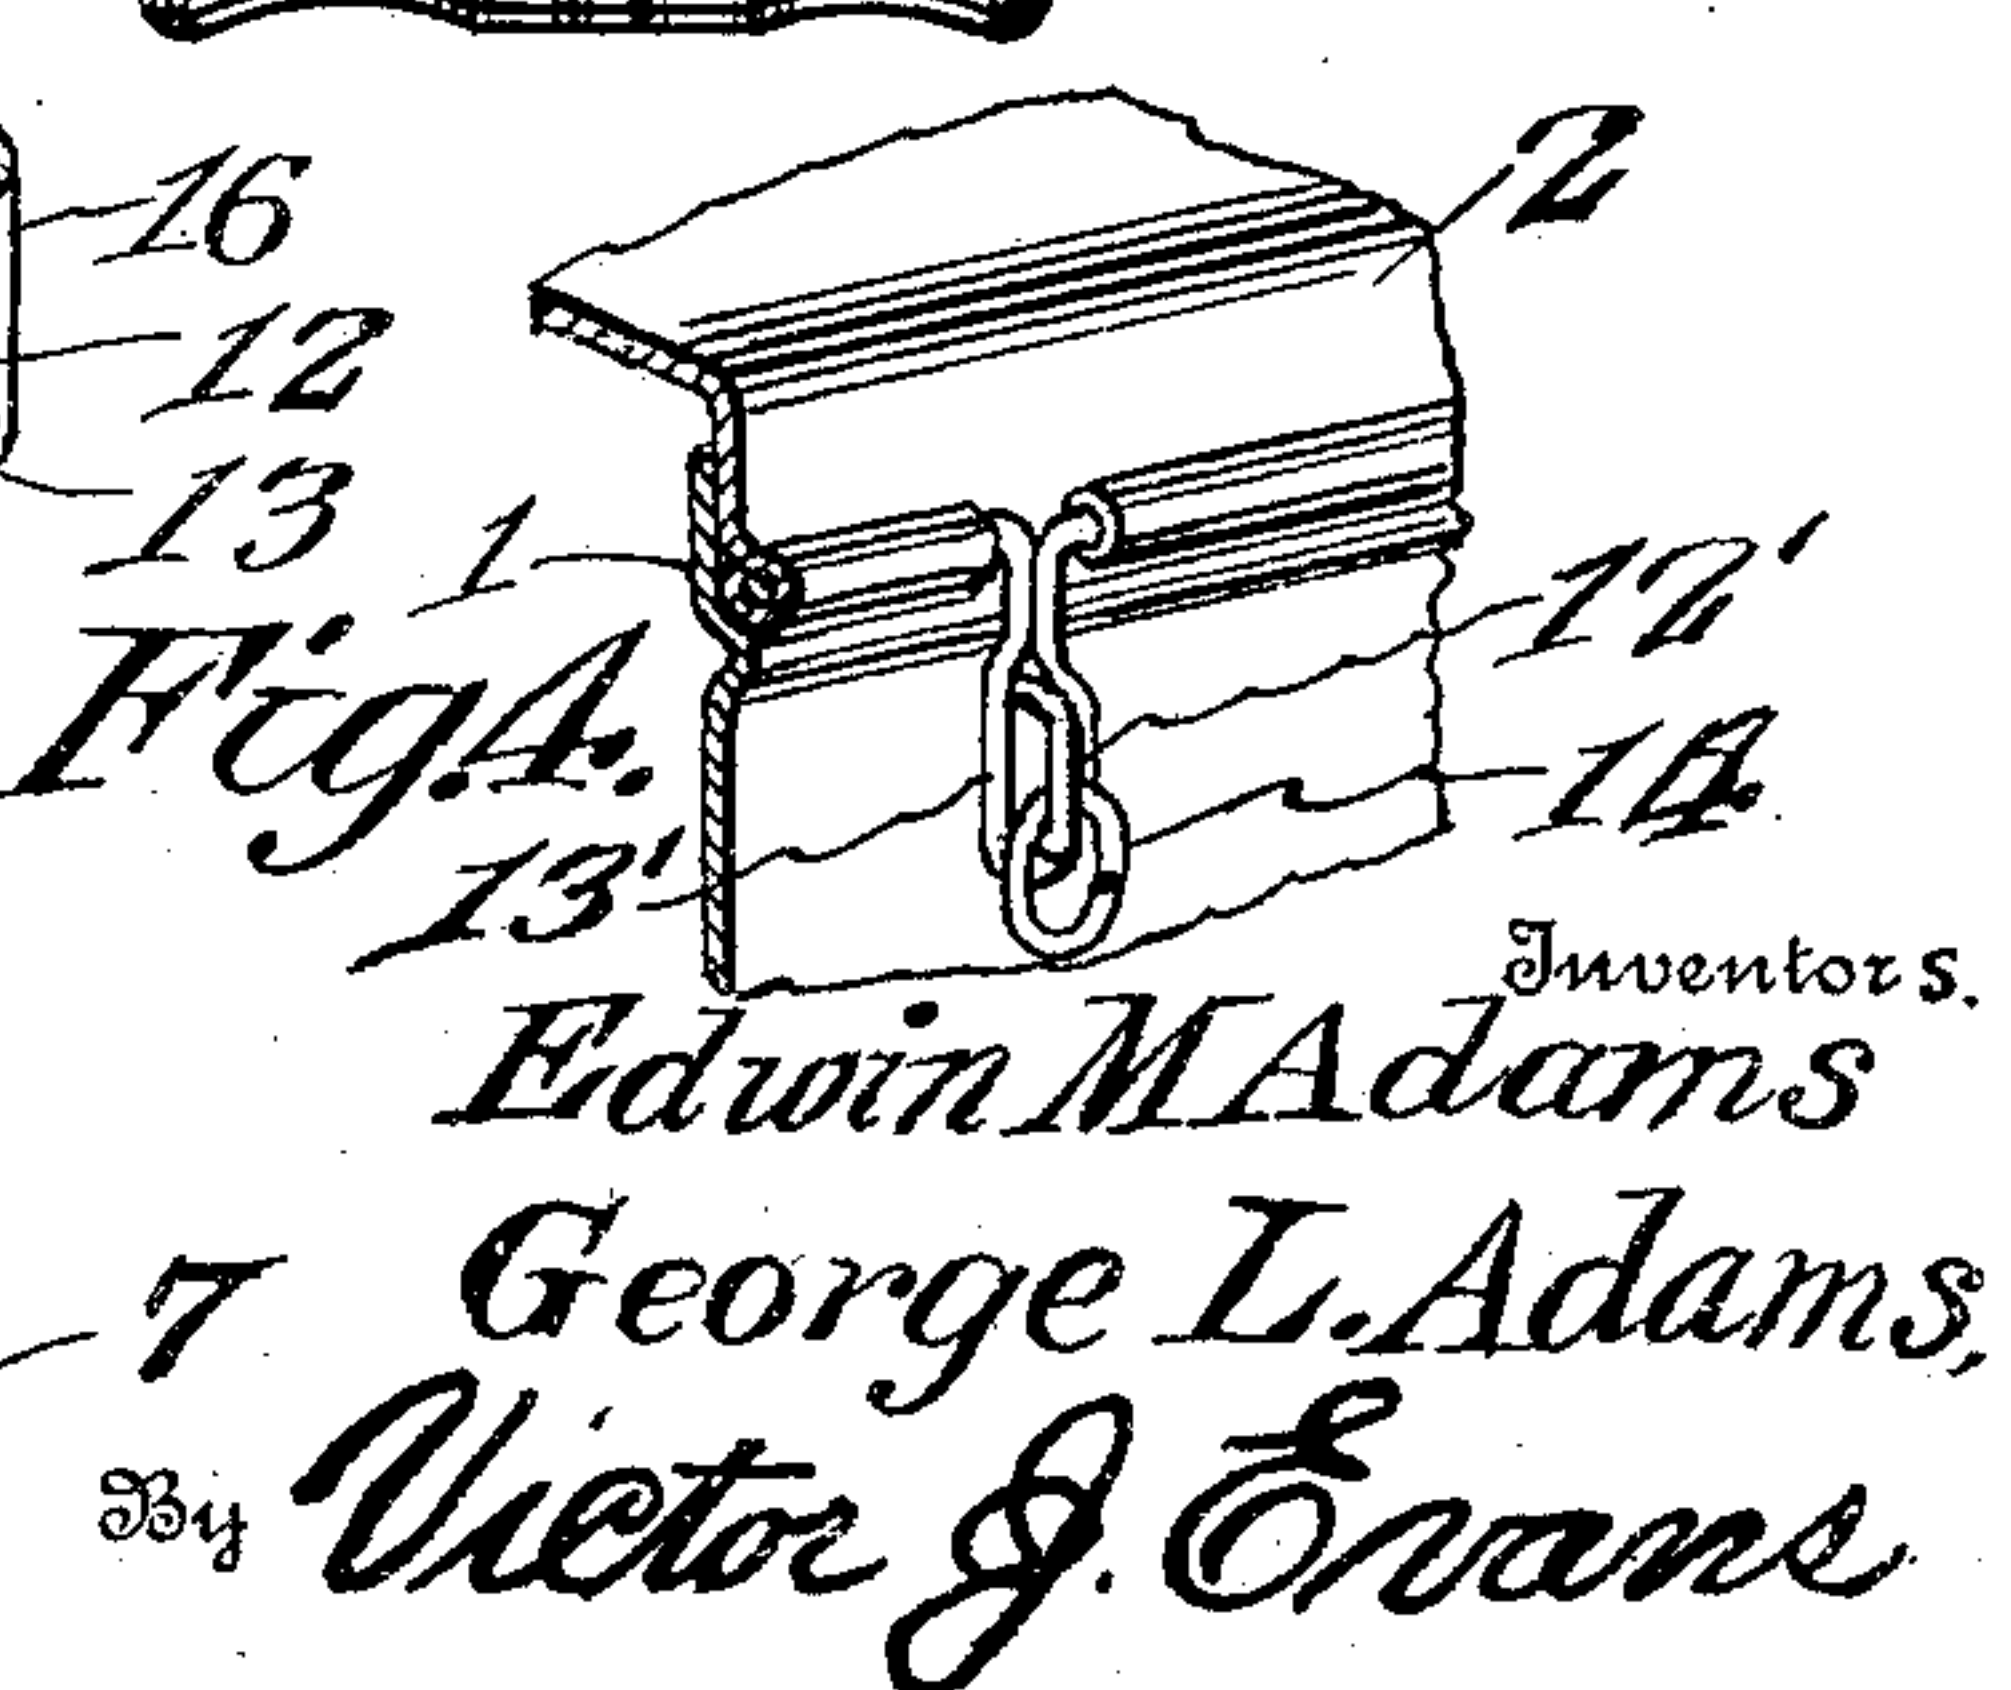 16
2
12
13
1
12'
Fig. 4.
14.
13'
Inventors.
Edwin M Adams
George L. Adams,
7
By Victor J. Evans